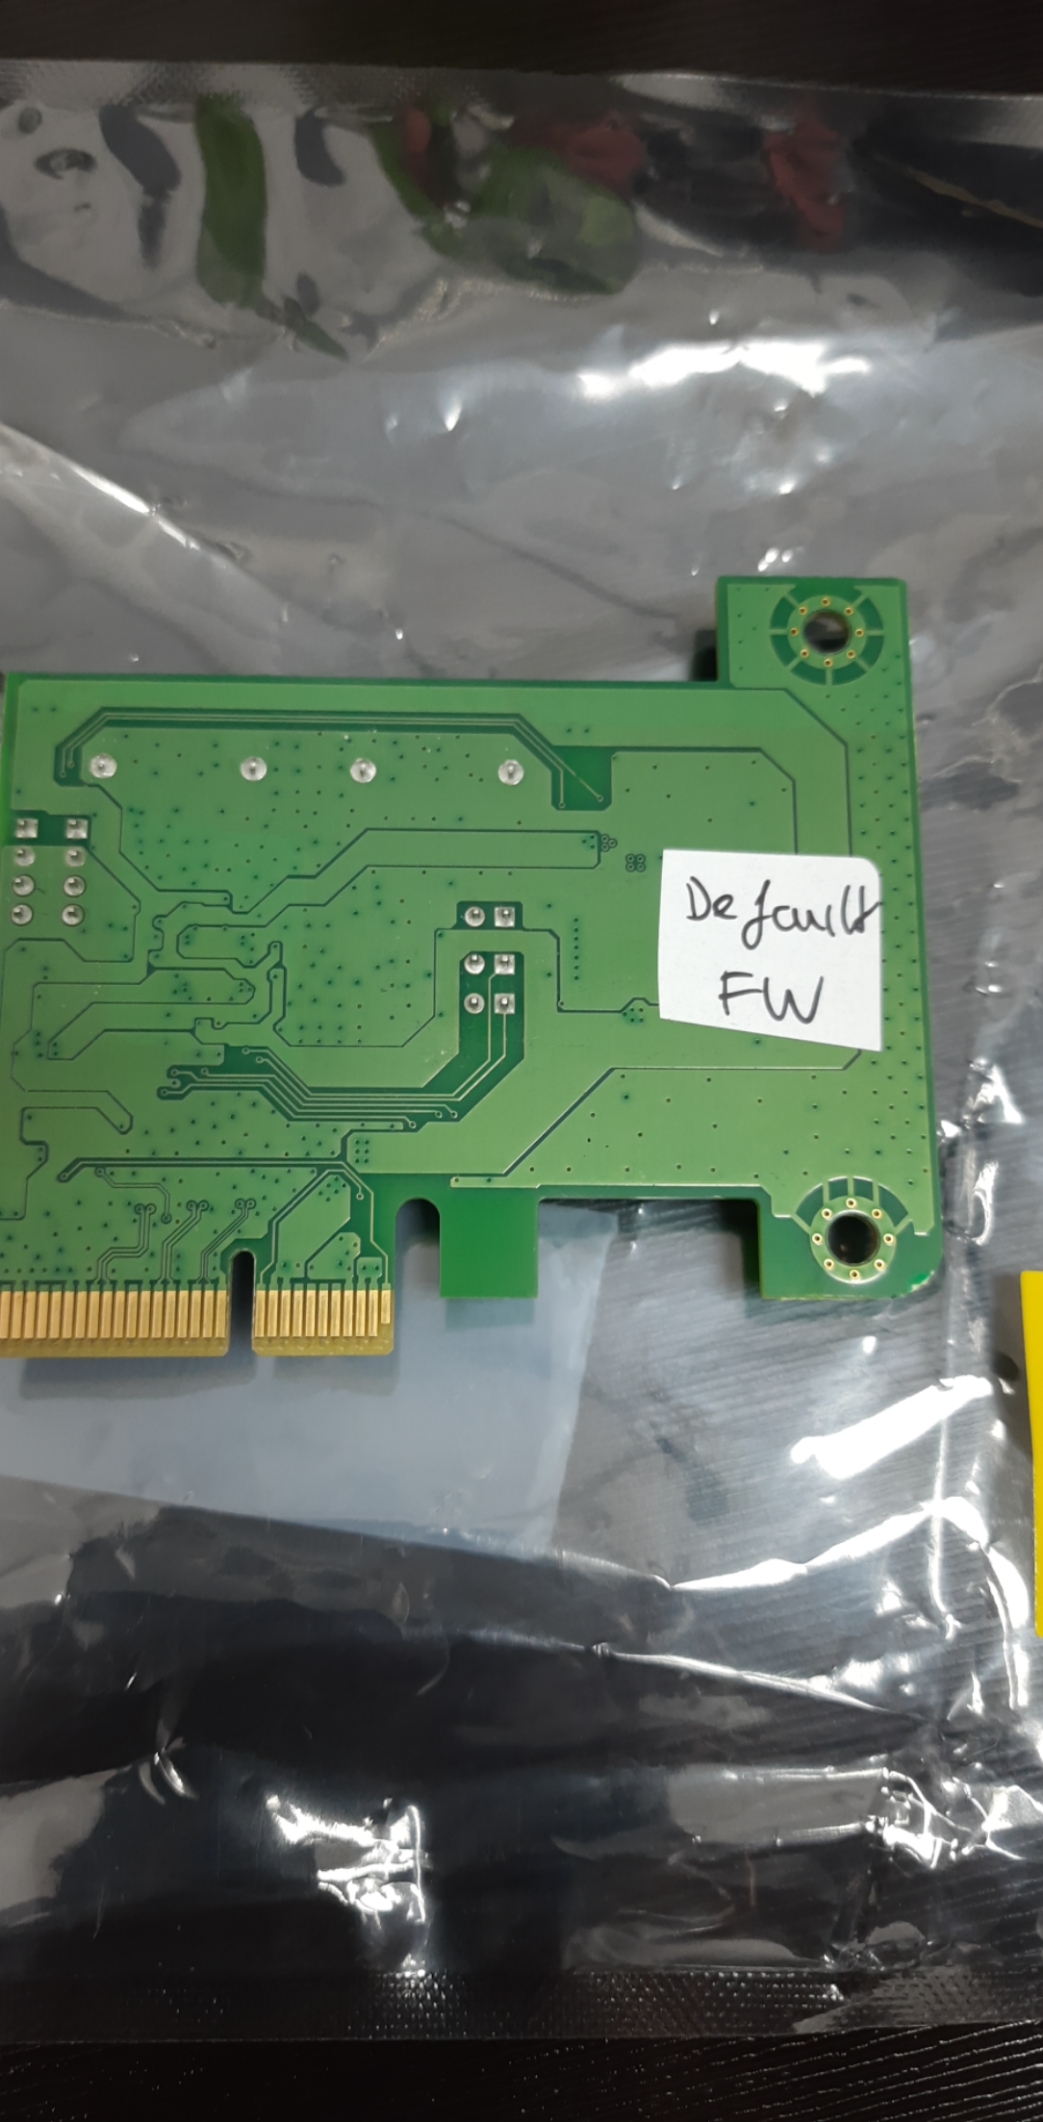 Default
FW